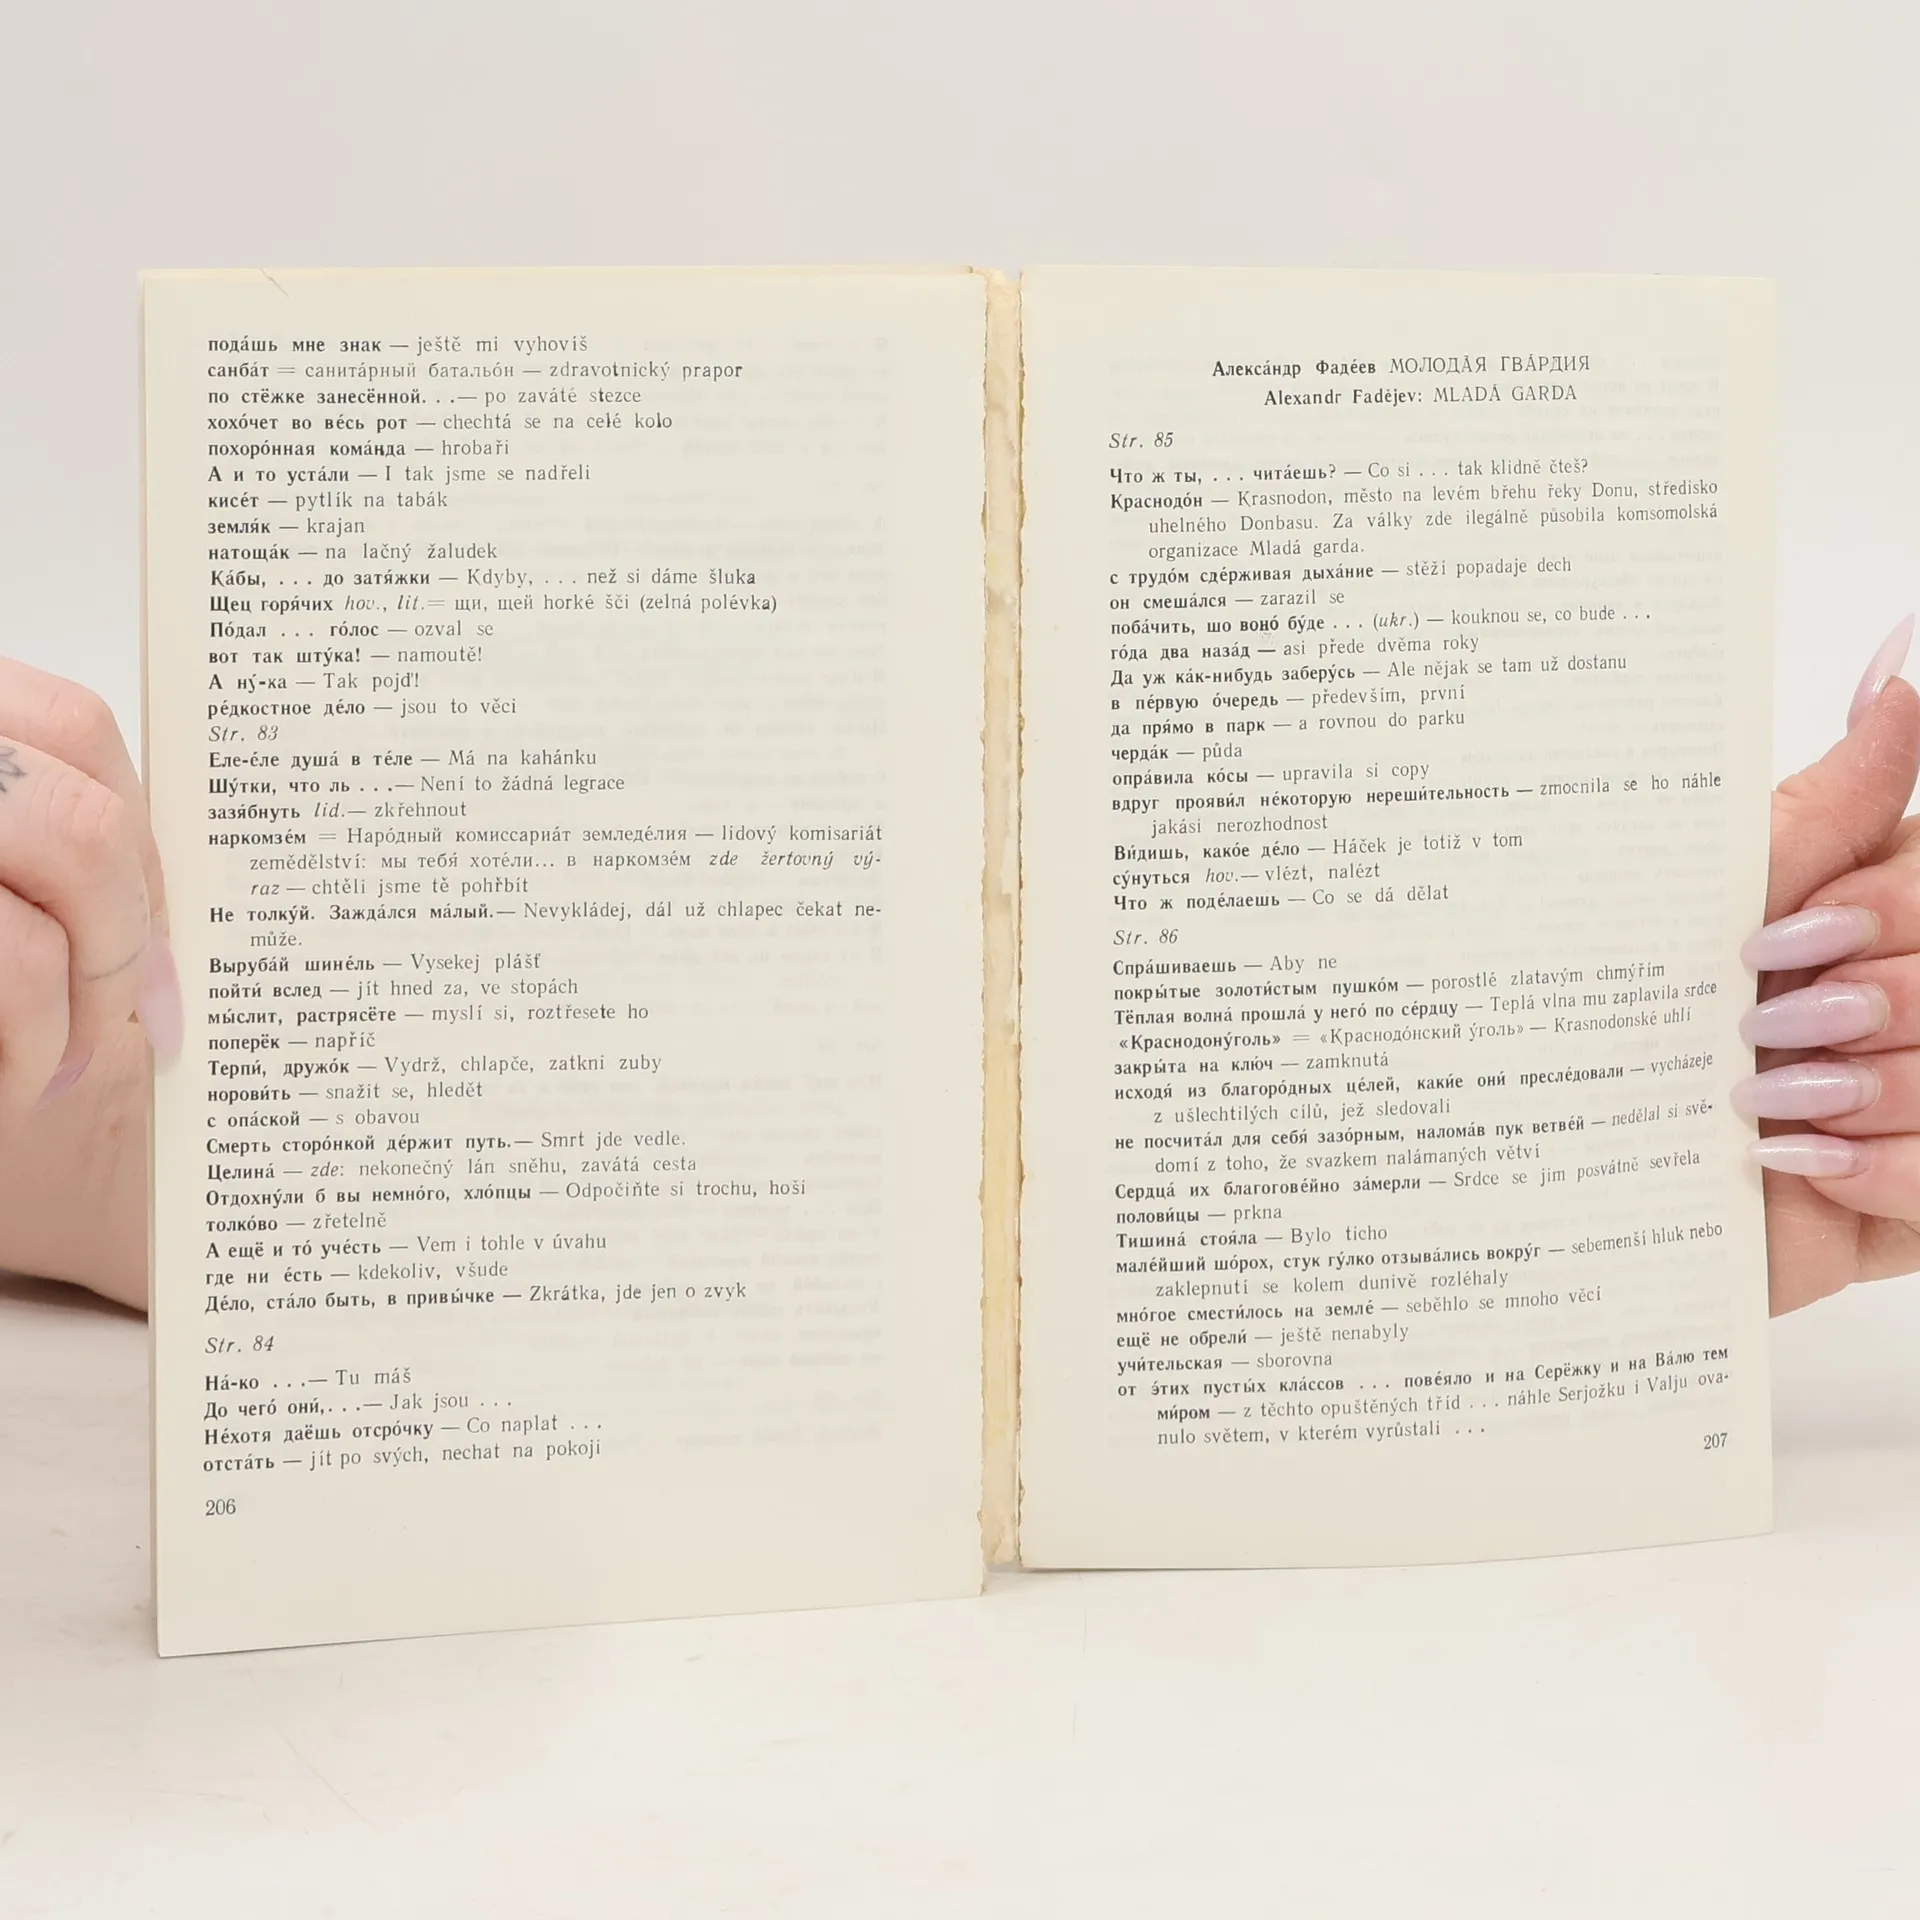 пода́шь мне знак — ještě mi vyhovíš
санба́т = санита́рный батальо́н — zdravotnický prapor
по стёжке занесённой. . .— po zaváté stezce
хохо́чет во ве́сь рот — chechtá se na celé kolo
похоро́нная кома́нда — hrobaři
А и то уста́ли — I tak jsme se nadřeli
кисе́т — pytlík na tabák
земля́к — krajan
натоща́к — na lačný žaludek
Ка́бы, . . . до затя́жки — Kdyby, . . . než si dáme šluka
Щец горя́чих hov., lit.= щи, щей horké šči (zelná polévka)
По́дал . . . го́лос — ozval se
вот так шту́ка! — namoutě!
А ну́-ка — Tak pojď!
ре́дкостное де́ло — jsou to věci
Str. 83
Еле-е́ле душа́ в те́ле — Má na kahánku
Шу́тки, что ль . . .— Není to žádná legrace
зазя́бнуть lid.— zkřehnout
наркомзе́м = Наро́дный комиссариа́т земледе́лия — lidový komisariát
zemědělství: мы тебя́ хоте́ли... в наркомзе́м zde žertovný vý-
raz — chtěli jsme tě pohřbít
Не толку́й. Зажда́лся ма́лый.— Nevykládej, dál už chlapec čekat ne-
může.
Выруба́й шине́ль — Vysekej plášť
пойти́ вслед — jít hned za, ve stopách
мы́слит, растрясёте — myslí si, roztřesete ho
поперёк — napříč
Терпи́, дружо́к — Vydrž, chlapče, zatkni zuby
норови́ть — snažit se, hledět
с опа́ской — s obavou
Смерть сторо́нкой де́ржит путь.— Smrt jde vedle.
Целина́ — zde: nekonečný lán sněhu, zavátá cesta
Отдохну́ли б вы немно́го, хло́пцы — Odpočiňte si trochu, hoši
толко́во — zřetelně
А ещё и то́ уче́сть — Vem i tohle v úvahu
где ни е́сть — kdekoliv, všude
Де́ло, ста́ло быть, в привы́чке — Zkrátka, jde jen o zvyk
Str. 84
На́-ко . . .— Tu máš
До чего́ они́,. . .— Jak jsou . . .
Не́хотя даёшь отсро́чку — Co naplat . . .
отста́ть — jít po svých, nechat na pokoji
206
Алекса́ндр Фаде́ев МОЛОДА́Я ГВА́РДИЯ
Alexandr Fadějev: MLADÁ GARDA
Str. 85
Что ж ты, . . . чита́ешь? — Co si . . . tak klidně čteš?
Краснодо́н — Krasnodon, město na levém břehu řeky Donu, středisko
uhelného Donbasu. Za války zde ilegálně působila komsomolská
organizace Mladá garda.
с трудо́м сде́рживая дыха́ние — stěží popadaje dech
он смеша́лся — zarazil se
поба́чить, шо воно́ бу́де . . . (ukr.) — kouknou se, co bude . . .
го́да два наза́д — asi přede dvěma roky
Да уж ка́к-нибудь заберу́сь — Ale nějak se tam už dostanu
в пе́рвую о́чередь — především, první
да пря́мо в парк — a rovnou do parku
черда́к — půda
опра́вила ко́сы — upravila si copy
вдруг прояви́л не́которую нереши́тельность — zmocnila se ho náhle
jakási nerozhodnost
Ви́дишь, како́е де́ло — Háček je totiž v tom
су́нуться hov.— vlézt, nalézt
Что ж поде́лаешь — Co se dá dělat
Str. 86
Спра́шиваешь — Aby ne
покры́тые золоти́стым пушко́м — porostlé zlatavým chmýřím
Тёплая волна́ прошла́ у него́ по се́рдцу — Teplá vlna mu zaplavila srdce
«Краснодону́голь» = «Краснодо́нский у́голь» — Krasnodonské uhlí
закры́та на клю́ч — zamknutá
исходя́ из благоро́дных це́лей, каки́е они́ пресле́довали — vycházeje
z ušlechtilých cílů, jež sledovali
не посчита́л для себя́ зазо́рным, налома́в пук ветве́й — nedělal si svě-
domí z toho, že svazkem nalámaných větví
Сердца́ их благогове́йно за́мерли — Srdce se jim posvátně sevřela
полови́цы — prkna
Тишина́ стоя́ла — Bylo ticho
мале́йший шо́рох, стук гу́лко отзыва́лись вокру́г — sebemenší hluk nebo
zaklepnutí se kolem dunivě rozléhaly
мно́гое смести́лось на земле́ — seběhlo se mnoho věcí
ещё не обрели́ — ještě nenabyly
учи́тельская — sborovna
от э́тих пусты́х кла́ссов . . . пове́яло и на Серёжку и на Ва́лю тем
ми́ром — z těchto opuštěných tříd . . . náhle Serjožku i Valju ova-
nulo světem, v kterém vyrůstali . . .
207